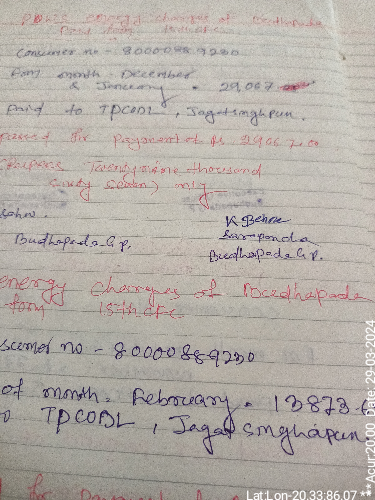 energy charges of Budhapada
Consumer no - 80000889230
for month December
& January . 29,067
paid to TPCODL, Jagatsinghpur.
passed for payment of Rs 29067.00
(Rupees Twenty nine thousand
sixty seven) only
K Behera
Sarapancha
Budhapada G.P. Budhapada G.P.
energy charges of Budhapada
form 15th CFC
sumer no - 80000889230
of month. February . 13873
to TPCODL, Jagatsinghapur
for
Lat Lon-20.33:86.07 **Acur:20.00 Date: 29-03-2024